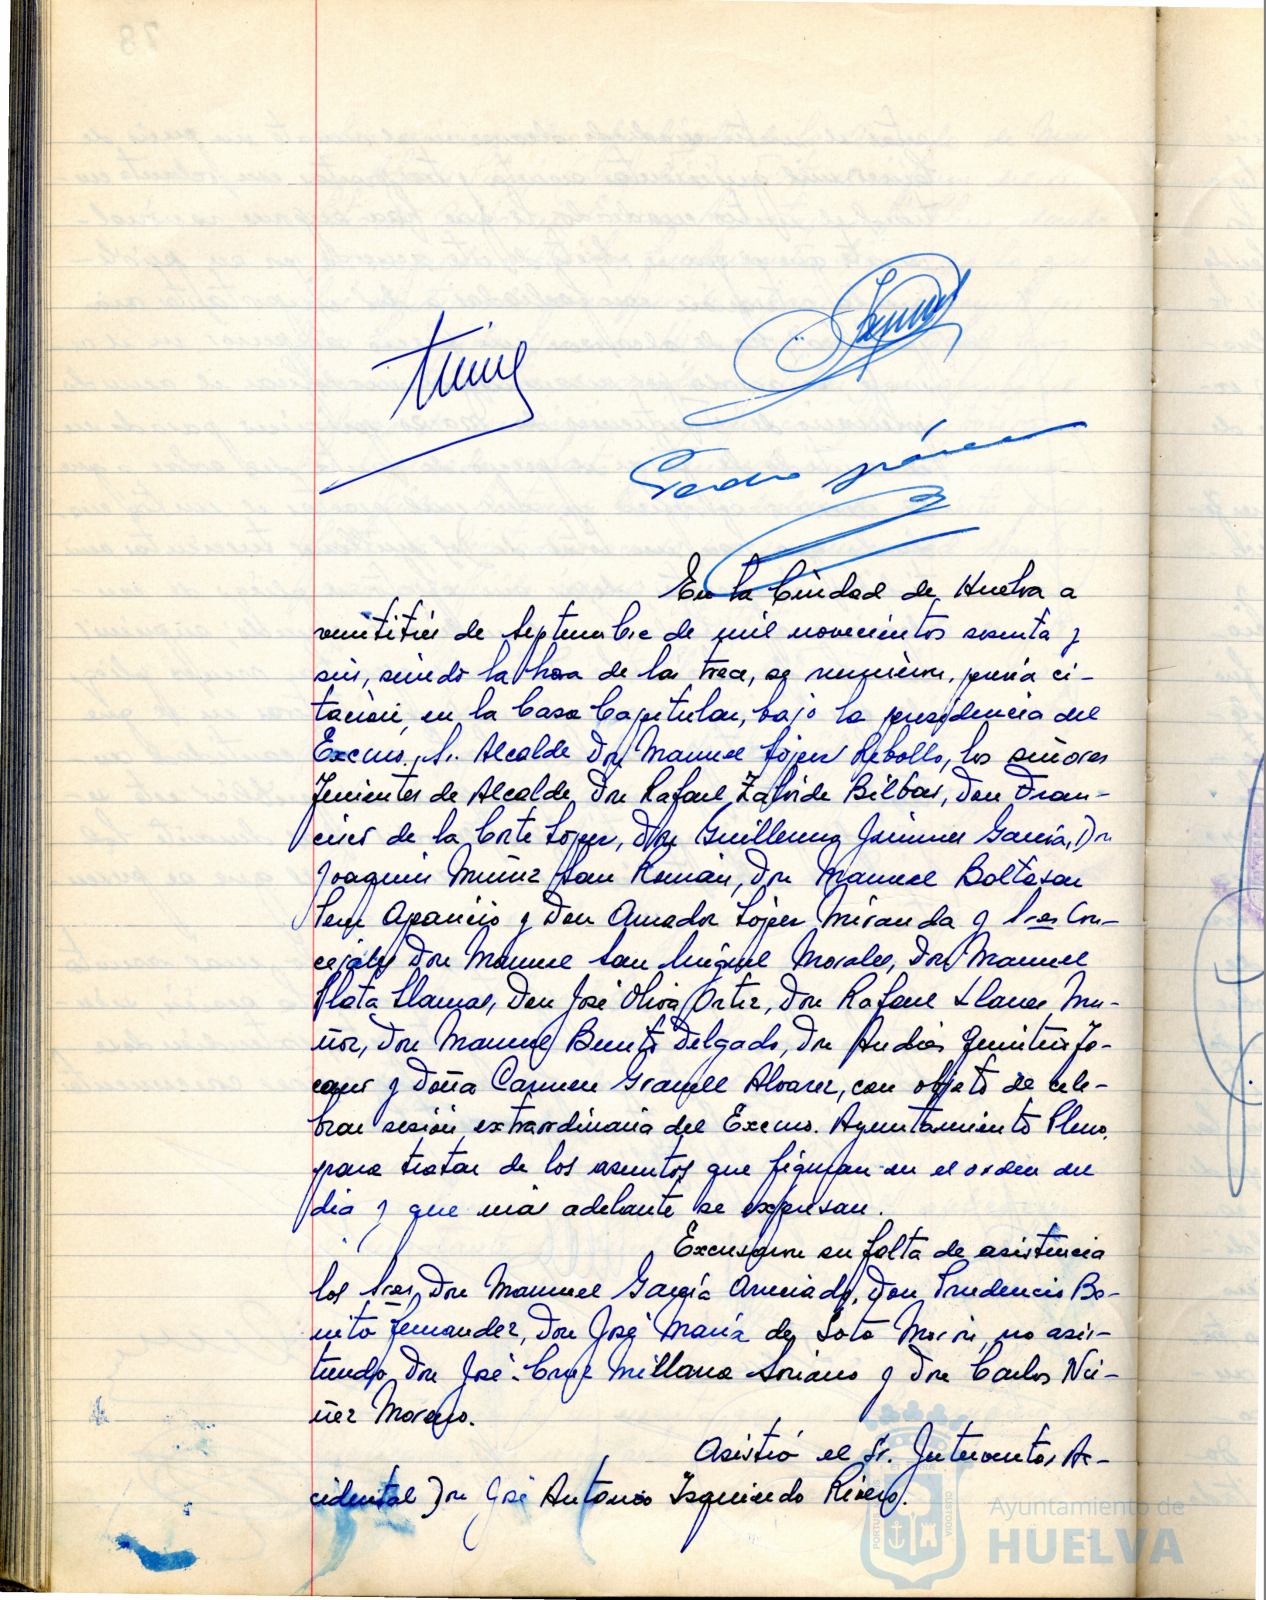 En la Ciudad de Huelva a
veintitrés de Septiembre de mil novecientos sesenta y
seis, siendo la hora de las trece, se reunieron, previa ci-
tación, en la Casa Capitular, bajo la presidencia del
Excmo. Sr. Alcalde Don Manuel López Rebollo, los señores
Tenientes de Alcalde Don Rafael Zalvide Bilbao, Don Fran-
cisco de la Corte López, Don Guillermo Jiménez García, Don
Joaquín Muñiz San Román, Don Manuel Baltasar
Aparicio y Don Amador López Miranda y Sres Con-
cejales Don Manuel San Miguel Morales, Don Manuel
Plata Llamas, Don José Oliva Ortiz, Don Rafael Llanes Mu-
ñoz, Don Manuel Benito Delgado, Don Andrés Quintero
y Doña Carmen Granell Alvarez, con objeto de cele-
brar sesión extraordinaria del Excmo. Ayuntamiento Pleno,
para tratar de los asuntos que figuran en el orden del
día y que más adelante se expresan.
Excusaron su falta de asistencia
los Sres Don Manuel García Don Prudencio Bo-
nito Fernandez, Don José María de Soto Morón, no asis-
tiendo Don José Cruz Millana Soriano y Don Carlos Nú-
ñez Moreno.
Asistió el Sr. Interventor Ac-
cidental Don José Antonio Izquierdo Rivero.
Ayuntamiento de
HUELVA